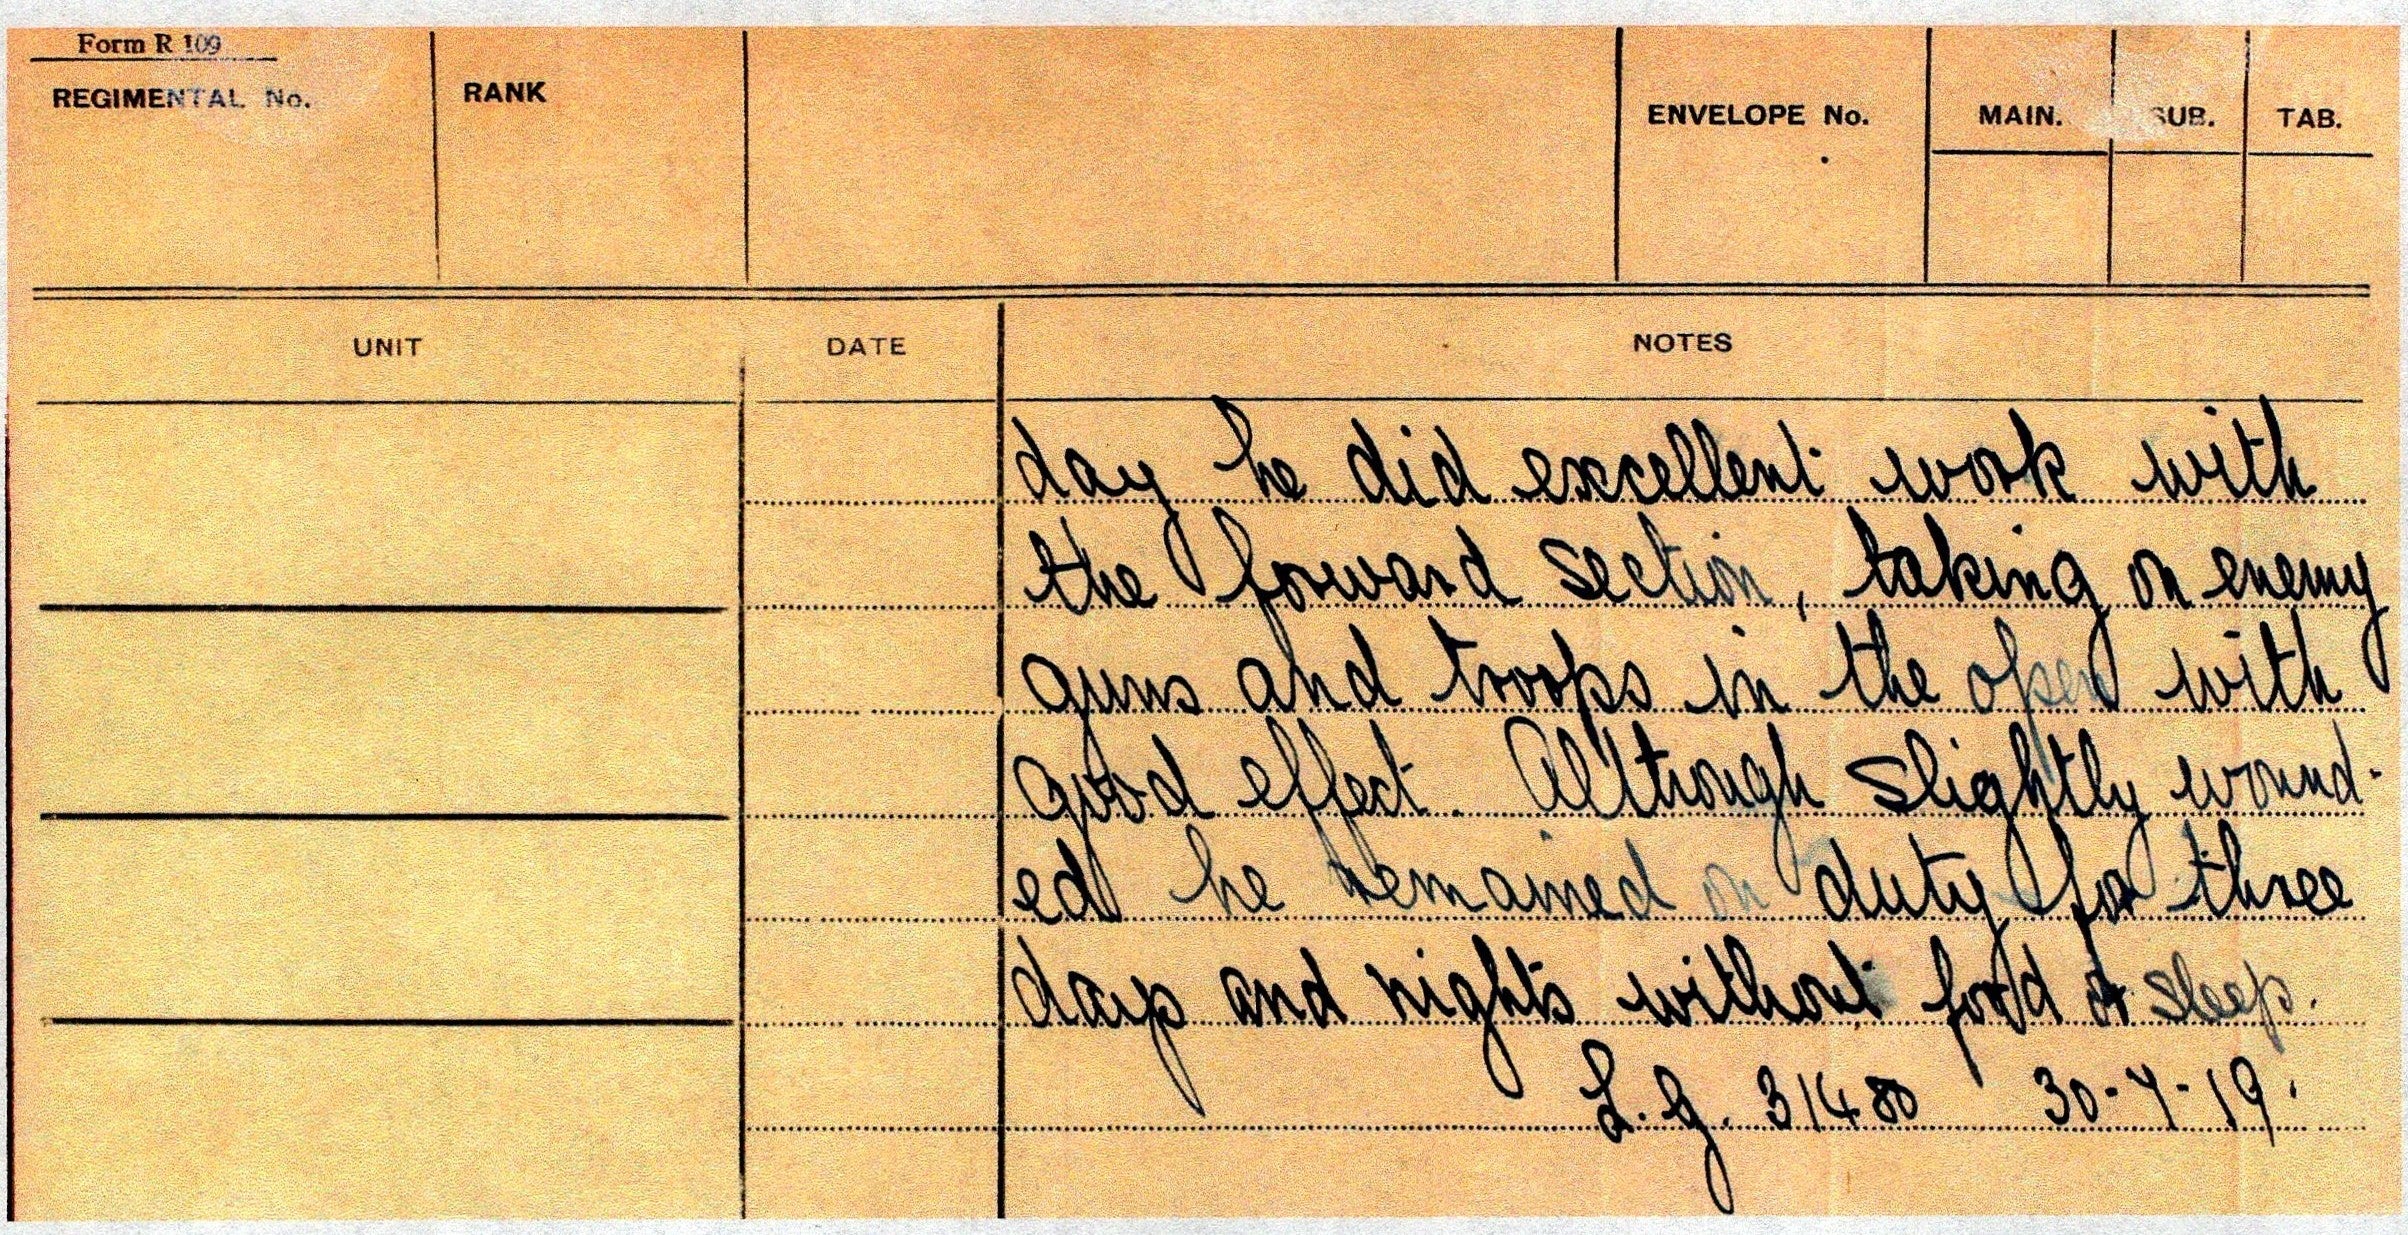 Form R 109
REGIMENTAL No. RANK ENVELOPE No. MAIN. SUB. TAB.
UNIT DATE NOTES
day he did excellent work with
the forward section, taking on enemy
guns and troops in the open with
good effect. Although slightly wound-
ed he remained on duty for three
days and nights without food or sleep.
L.G. 31480 30-7-19.